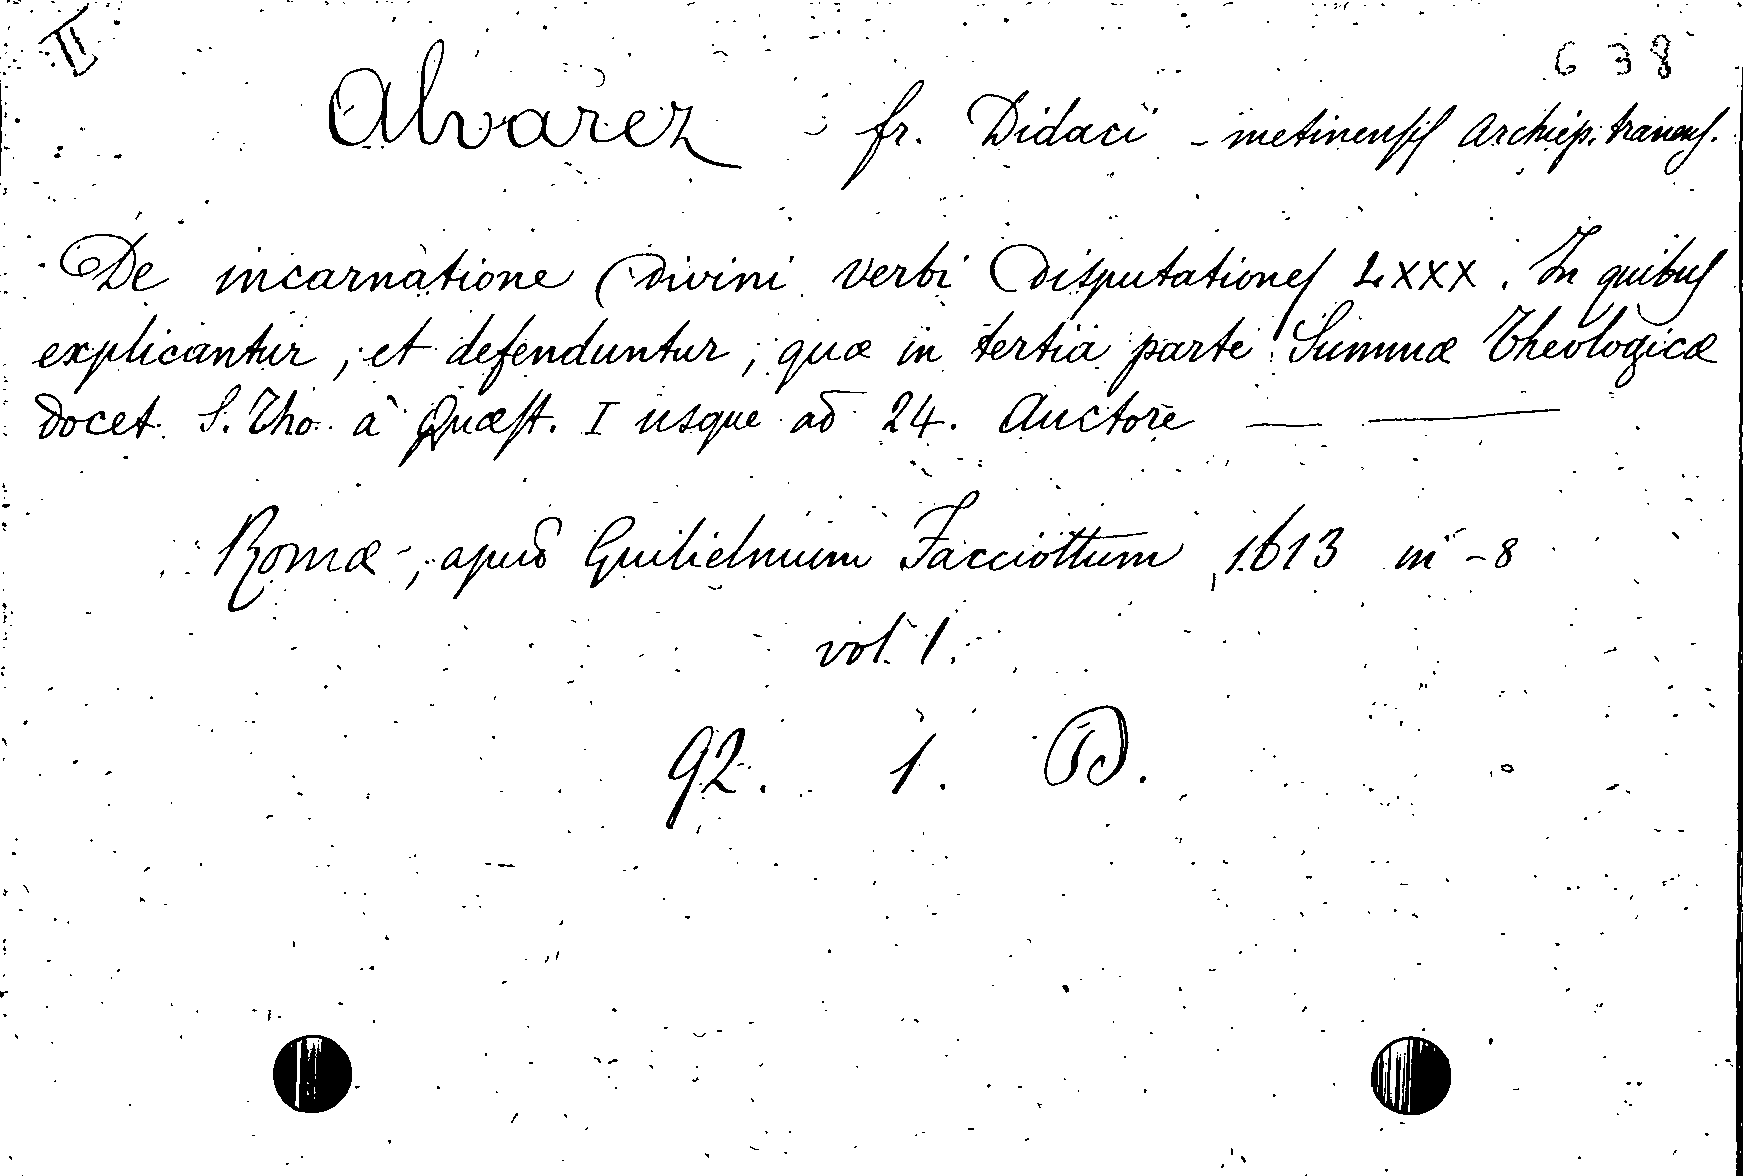 II
638
Alvarez - fr. Didaci - metinensis Archiep. tranens.
De incarnatione Divini Verbi Disputationes LXXX. In quibus
explicantur, et defenduntur, quæ in tertia parte Summæ Theologicæ
Docet S. Tho. à Quæst. I usque ad 24. Auctore — ——
Romæ, apud Guilielmum Facciottum 1613 in-8
vol. 1.
92. 1. D.